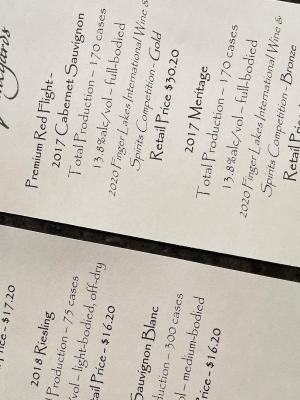 Premium Red Flight -
2017 Cabernet Sauvignon
Total Production – 170 cases
13.8%alc/vol – full-bodied
2020 Finger Lakes International Wine &
Spirits Competition - Gold
Retail Price $30.20
2017 Meritage
Total Production – 170 cases
13.8%alc/vol – full-bodied
2020 Finger Lakes International Wine &
Spirits Competition - Bronze
Retail
- $17.20
2018 Riesling
Production – 75 cases
/vol – light-bodied, off-dry
Price - $16.20
Sauvignon Blanc
– 300 cases
– medium-bodied
- $16.20